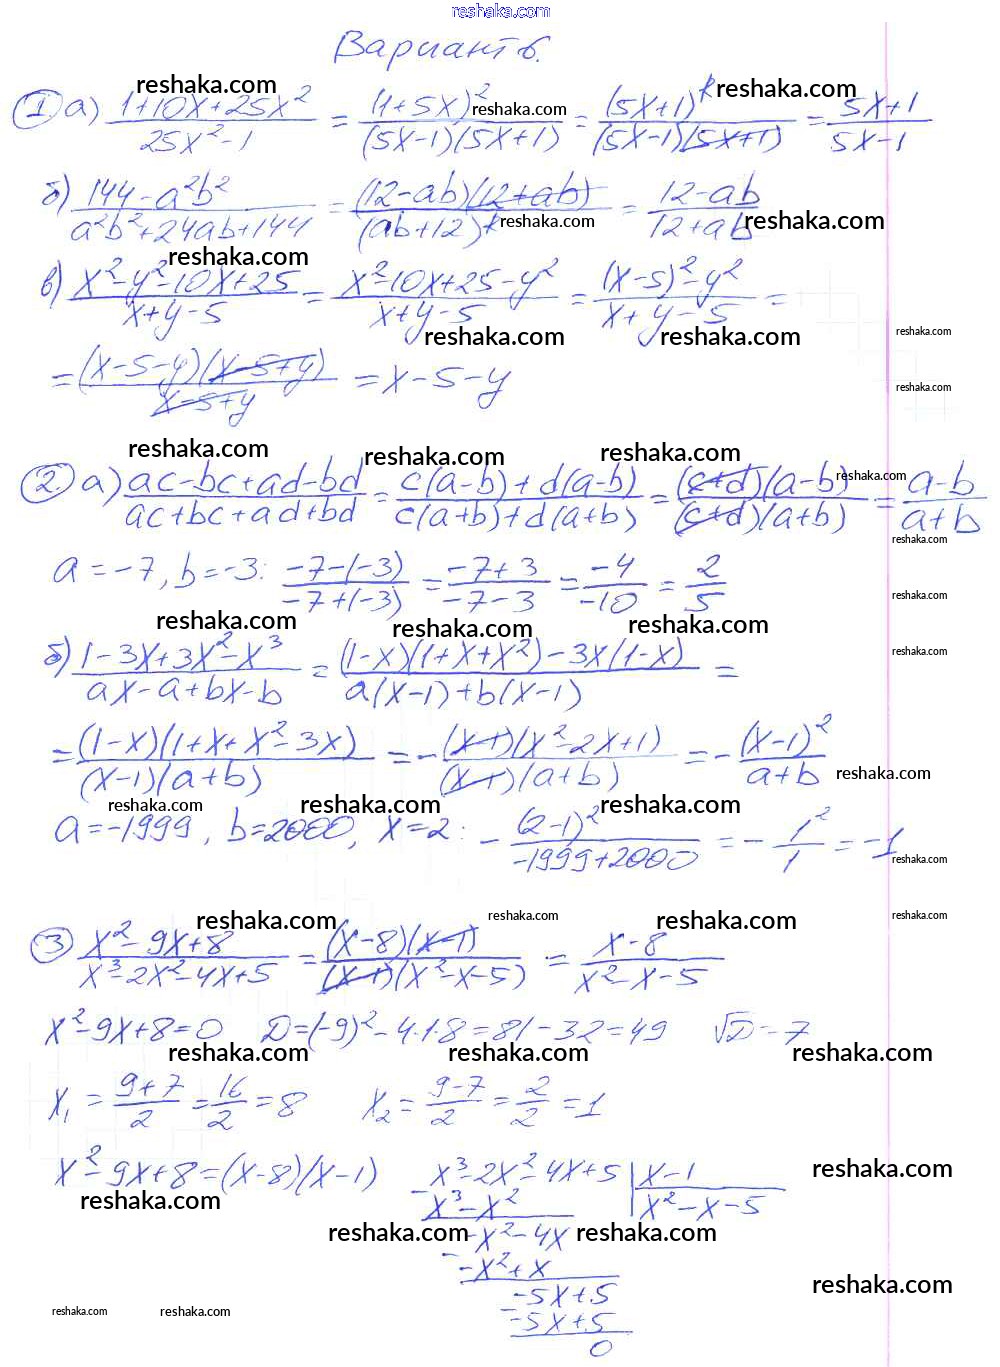 reshaka.com
Вариант 6.
reshaka.com reshaka.com reshaka.com
① а) (1+10x+25x²)/(25x²-1) = (1+5x)²/((5x-1)(5x+1)) = (5x+1)²/((5x-1)(5x+1)) = (5x+1)/(5x-1)
б) (144-a²b²)/(a²b²+24ab+144) = ((12-ab)(12+ab))/(ab+12)² = (12-ab)/(12+ab)
reshaka.com reshaka.com reshaka.com
в) (x²-y²-10x+25)/(x+y-5) = (x²-10x+25-y²)/(x+y-5) = ((x-5)²-y²)/(x+y-5) =
reshaka.com reshaka.com reshaka.com
= ((x-5-y)(x-5+y))/(x-5+y) = x-5-y
reshaka.com
reshaka.com reshaka.com reshaka.com reshaka.com
② а) (ac-bc+ad-bd)/(ac+bc+ad+bd) = (c(a-b)+d(a-b))/(c(a+b)+d(a+b)) = ((c+d)(a-b))/((c+d)(a+b)) = (a-b)/(a+b)
reshaka.com
a=-7, b=-3: (-7-(-3))/(-7+(-3)) = (-7+3)/(-7-3) = (-4)/(-10) = 2/5
reshaka.com
reshaka.com reshaka.com reshaka.com
б) (1-3x+3x²-x³)/(ax-a+bx-b) = ((1-x)(1+x+x²)-3x(1-x))/(a(x-1)+b(x-1)) =
reshaka.com
= ((1-x)(1+x+x²-3x))/((x-1)(a+b)) = -((x-1)(x²-2x+1))/((x-1)(a+b)) = -(x-1)²/(a+b)
reshaka.com
reshaka.com reshaka.com reshaka.com
a=-1999, b=2000, x=2: -(2-1)²/(-1999+2000) = -1²/1 = -1
reshaka.com
reshaka.com reshaka.com reshaka.com reshaka.com
③ (x²-9x+8)/(x³-2x²-4x+5) = ((x-8)(x-1))/((x-1)(x²-x-5)) = (x-8)/(x²-x-5)
x²-9x+8=0 D=(-9)²-4·1·8=81-32=49 √D=7
reshaka.com reshaka.com reshaka.com
x₁ = (9+7)/2 = 16/2 = 8 x₂ = (9-7)/2 = 2/2 = 1
x²-9x+8=(x-8)(x-1) x³-2x²-4x+5 | x-1
reshaka.com
reshaka.com
x³-x² x²-x-5
reshaka.com reshaka.com
-x²-4x
-x²+x
reshaka.com
-5x+5
reshaka.com reshaka.com
-5x+5
0